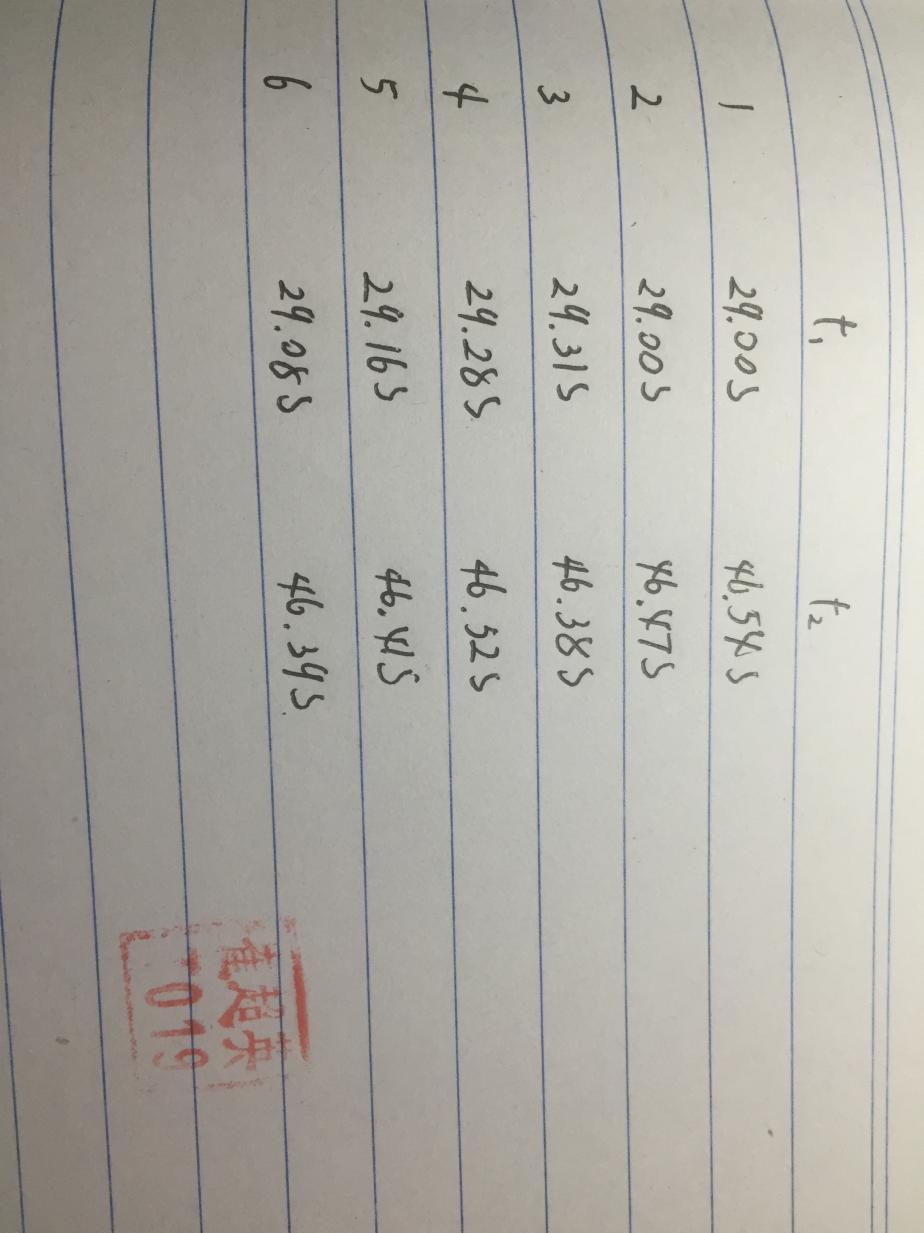 t₁ t₂
1 29.00s 46.54s
2 29.00s 46.47s
3 29.31s 46.38s
4 29.28s 46.52s
5 29.16s 46.41s
6 29.08s 46.39s.
超英
019